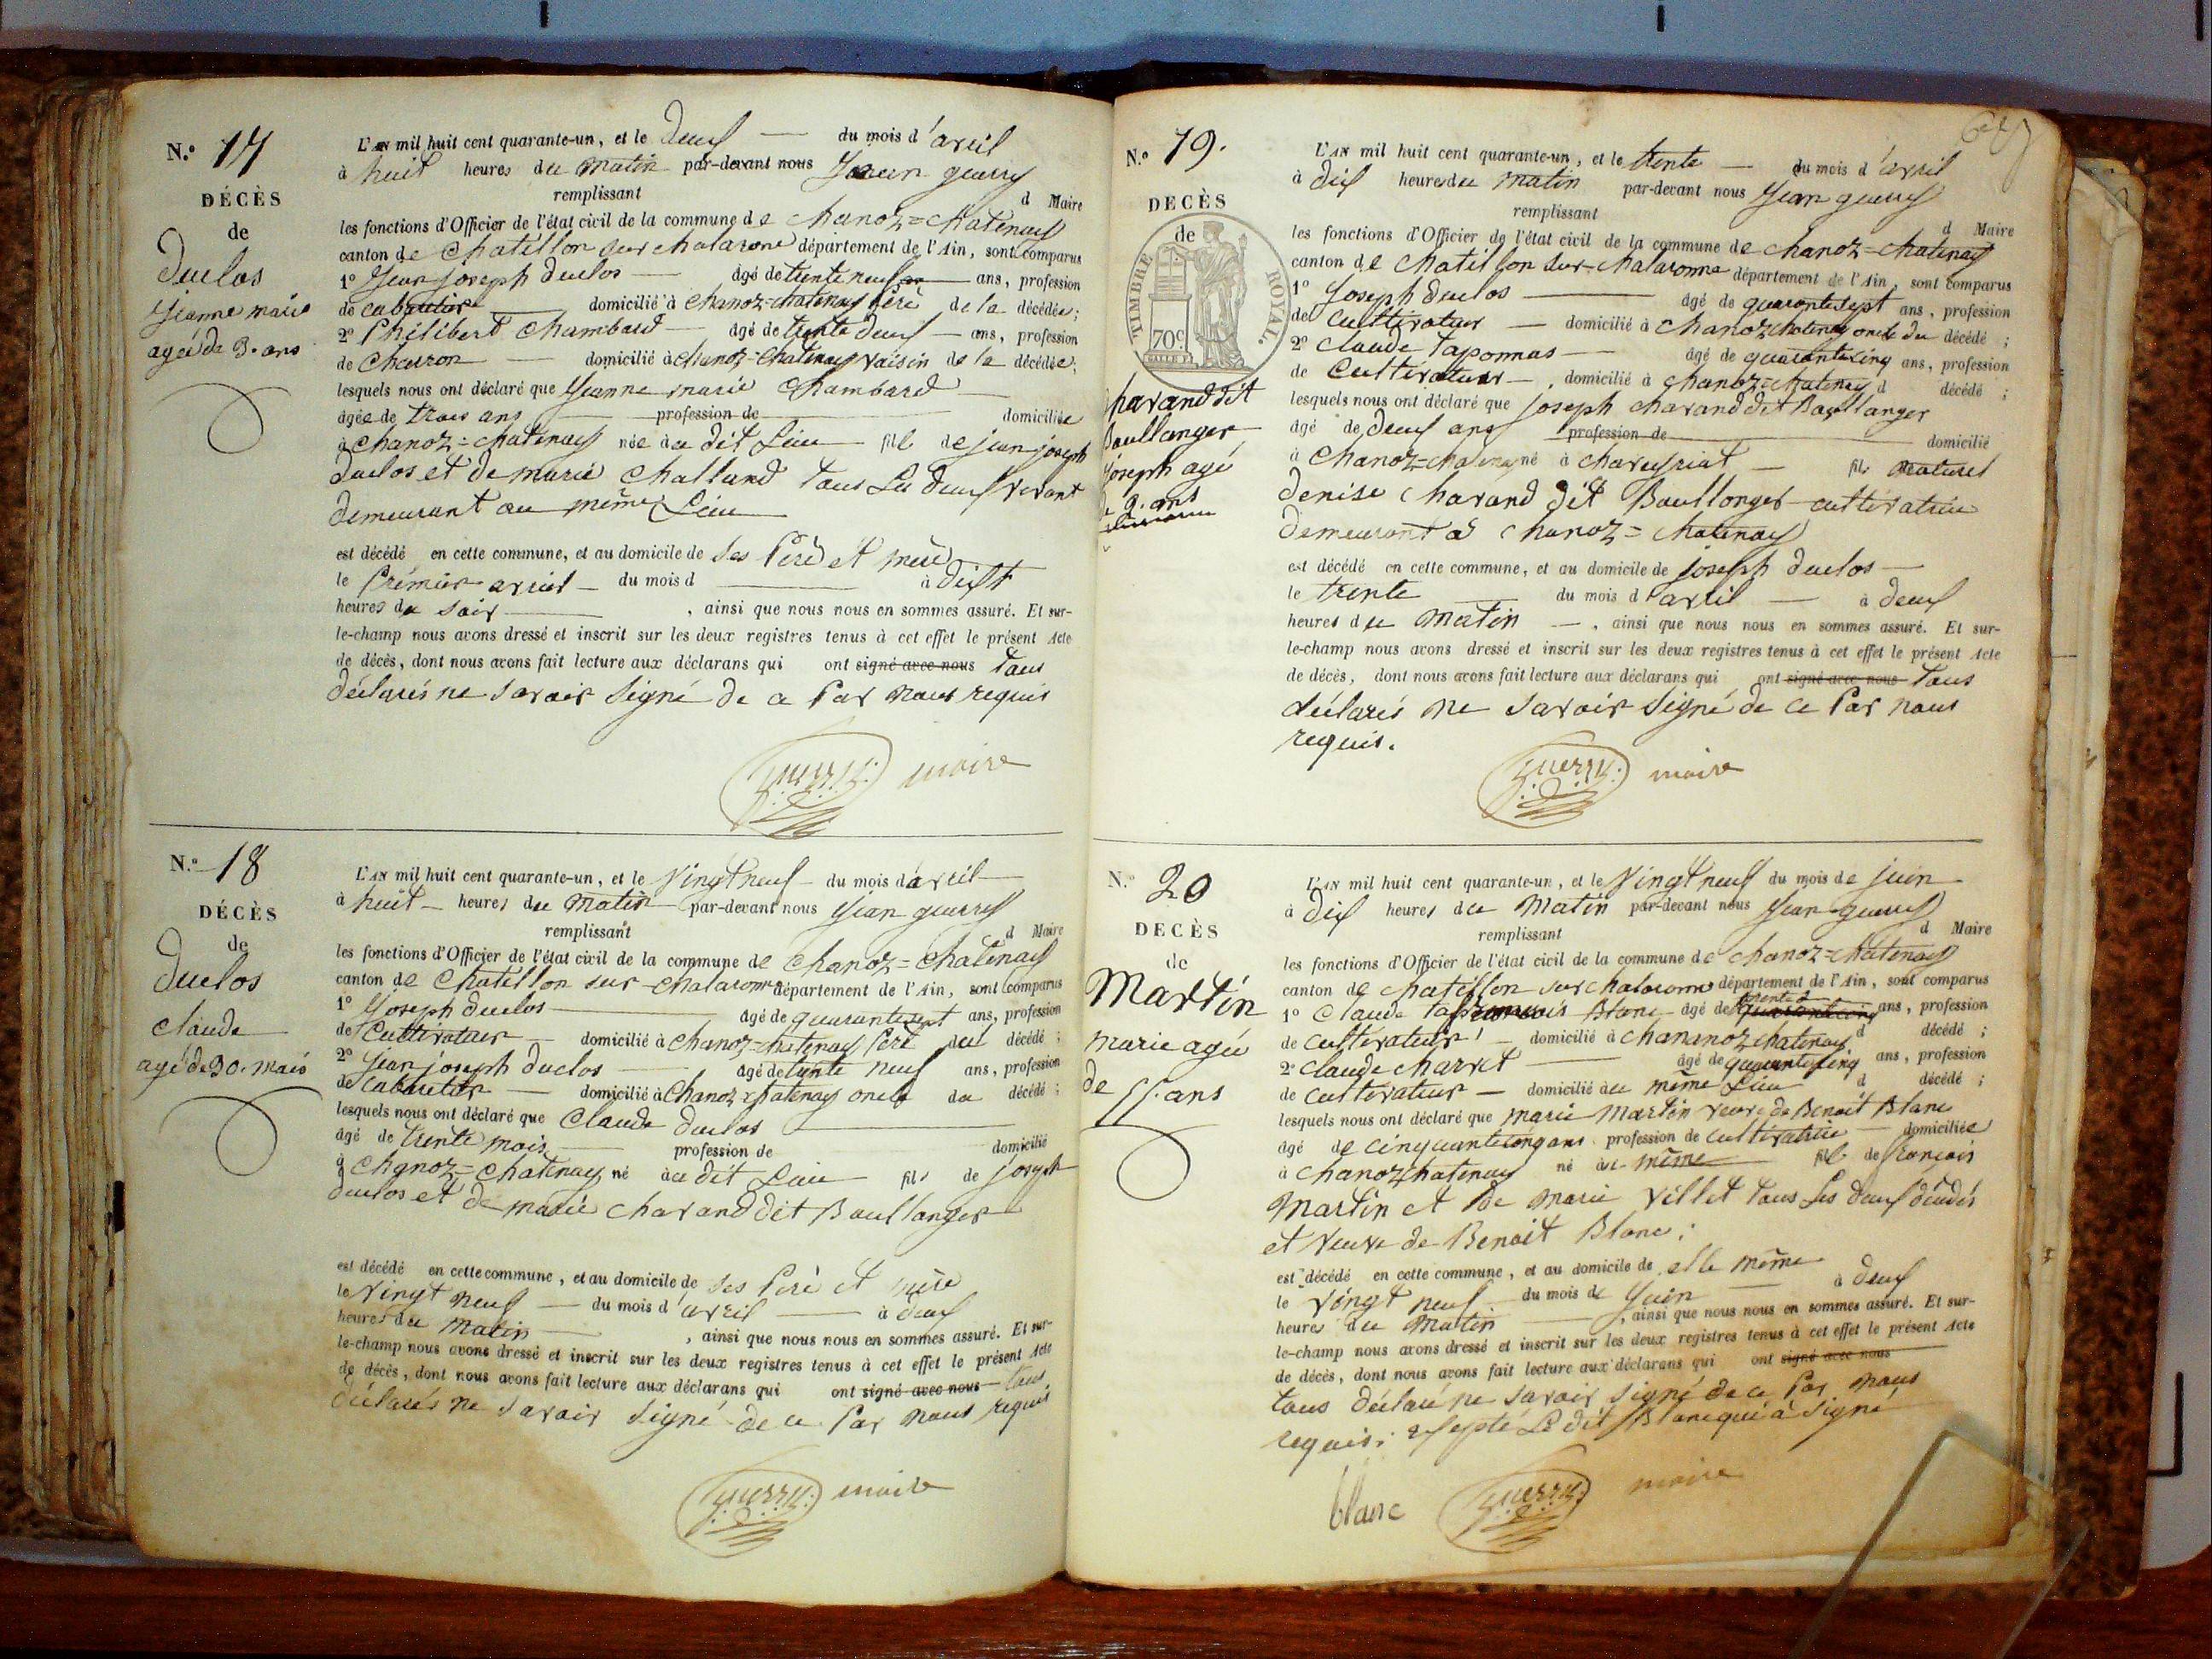 N.º 17
DÉCÈS
de
Duclos
Jeanne marie
agée de 3. ans
L'an mil huit cent quarante-un, et le deux du mois d'avril
à huit heures du matin par-devant nous Jean guerry
remplissant d Maire
les fonctions d'Officier de l'état civil de la commune de chanoz=chatenay
canton de Chatillon sur chalarone département de l'Ain, sont comparus
1º Jean joseph duclos âgé de trente neuf ans, profession
de cabaretier domicilié à chanoz=chatenay père de la décédée;
2º Philibert Chambard âgé de trente deux ans, profession
de charron domicilié à chanoz=chatenay voisin de la décédée;
lesquels nous ont déclaré que Jeanne marie Chambard
âgée de trois ans profession de domiciliée
à chanoz=chatenay née au dit Lieu fille de jean joseph
duclos et de marie Challand tous les deux vivant
demeurant au même Lieu
est décédé en cette commune, et au domicile de ses Père et mère
le Premier avril du mois d à dixt
heures du soir , ainsi que nous nous en sommes assuré. Et sur-
le-champ nous avons dressé et inscrit sur les deux registres tenus à cet effet le présent Acte
de décès, dont nous avons fait lecture aux déclarans qui ont signé avec nous tous
déclarés ne savoir signé de ce Par nous requis
guerry maire
N.º 18
DÉCÈS
de
duclos
claude
agé de 30. mois
L'an mil huit cent quarante-un, et le Vingt neuf du mois d'avril
à huit heures du matin par-devant nous Jean guerry
remplissant d Maire
les fonctions d'Officier de l'état civil de la commune de Chanoz=chatenay
canton de Chatillon sur-chalaronne département de l'Ain, sont comparus
1º Joseph duclos âgé de quarantesept ans, profession
de Cultivateur domicilié à chanoz=chatenay Père du décédé ;
2º Jean joseph duclos âgé de trente neuf ans, profession
de cabaretier domicilié à Chanoz=chatenay oncle du décédé ;
lesquels nous ont déclaré que Claude duclos
âgé de trente mois profession de domicilié
à Chanoz=Chatenay né au dit Lieu fils de joseph
duclos et de marie charand dit Boullanger
est décédé en cette commune, et au domicile de ses Père et mère
le Vingt neuf du mois d'avril à deux
heures du Matin , ainsi que nous nous en sommes assuré. Et sur-
le-champ nous avons dressé et inscrit sur les deux registres tenus à cet effet le présent Acte
de décès, dont nous avons fait lecture aux déclarans qui ont signé avec nous tous
déclarés ne savoir signé de ce Par nous requis
guerry maire
N.º 19.
DECÈS
de
TIMBRE ROYAL.
70c
charand dit
Boullanger
joseph agé
de 2. ans
L'an mil huit cent quarante-un, et le trente du mois d'avril
à dix heures du matin par-devant nous Jean guerry
remplissant d Maire
les fonctions d'Officier de l'état civil de la commune de chanoz=chatenay
canton de Chatillon sur-chalaronne département de l'Ain, sont comparus
1º Joseph duclos âgé de quarantesept ans, profession
de Cultivateur domicilié à chanoz chatenay oncle du décédé ;
2º Claude Taponnas âgé de quarantecinq ans, profession
de Cultivateur , domicilié à chanoz=chatenay d décédé ;
lesquels nous ont déclaré que joseph charand dit Boullanger
âgé de deux ans profession de domicilié
à Chanoz=chatenay né à chaveyriat fils naturel
denise charand dit Boullonger cultivatrice
demeurant à chanoz=chatenay
est décédé en cette commune, et au domicile de joseph duclos
le trente du mois d'avril à deux
heures du Matin , ainsi que nous nous en sommes assuré. Et sur-
le-champ nous avons dressé et inscrit sur les deux registres tenus à cet effet le présent Acte
de décès, dont nous avons fait lecture aux déclarans qui ont signé avec nous tous
déclarés ne savoir signé de ce Par nous
requis.
guerry maire
N.º 20
DECÈS
de
Martin
marie agée
de
55. ans
L'an mil huit cent quarante-un, et le Vingt neuf du mois de juin
à dix heures du Matin par-devant nous Jean guerry
remplissant d Maire
les fonctions d'Officier de l'état civil de la commune de chanoz=chatenay
canton de chatillon sur chalaronne département de l'Ain, sont comparus
1º Claude Blanc âgé de ans, profession
de cultivateur domicilié à chananoz chatenay d décédé ;
2º Claude charvet âgé de quarantecinq ans, profession
de cultivateur domicilié au même Lieu d décédé ;
lesquels nous ont déclaré que marie Martin veuve de Benoit Blanc
âgé de cinquantecinq ans profession de cultivatrice domiciliée
à chanoz chatenay né au même fille de françois
Martin et de marie Villet tous les deux décédés
et Veuve de Benoit Blanc ;
est décédé en cette commune, et au domicile de elle même
le Vingt neuf du mois de Juin à deux
heures du matin , ainsi que nous nous en sommes assuré. Et sur-
le-champ nous avons dressé et inscrit sur les deux registres tenus à cet effet le présent Acte
de décès, dont nous avons fait lecture aux déclarans qui ont signé avec nous
tous déclaré ne savoir signé de ce Par nous
requis ; excepté Le dit Blanc qui à signé
blanc guerry maire